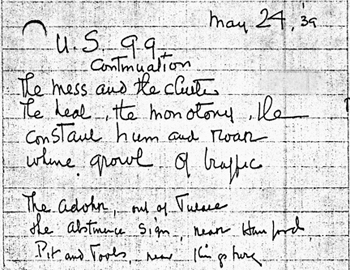 May 24, '39
U.S. 99
Continuation
The mess and the clutter
The heat, the monotony, the
constant hum and roar
whine growl of traffic
The Adohr, out of Tulare
the Abstinence sign, near Hanford
Pit and Tools, near Kingsburg